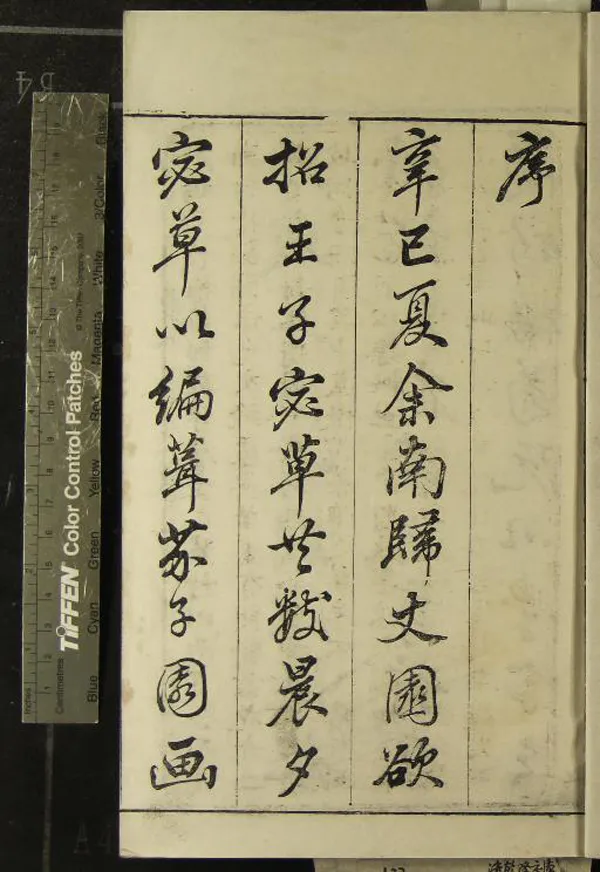 序
辛巳夏余南歸丈圃欲
招王子宓草共數晨夕
宓草以編葺芥子園画
TIFFEN Color Control Patches
© The Tiffen Company, 2007
Blue Cyan Green Yellow Red Magenta White 3/Color Black
Inches
Centimetres